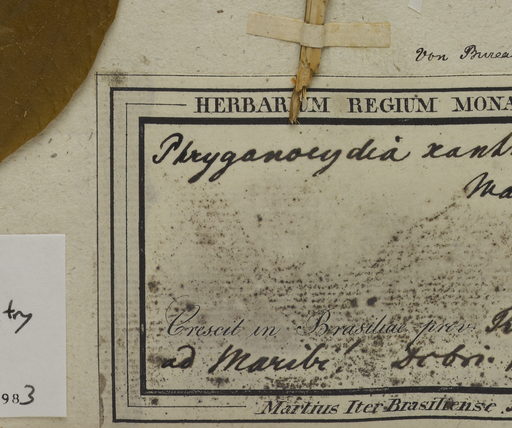 Von Burea
HERBARIUM REGIUM MONA
Phryganocydia xanth
Ma
Crescit in Brasiliae prov.
ad Maribi!
try
983
Martius Iter Brasiliense